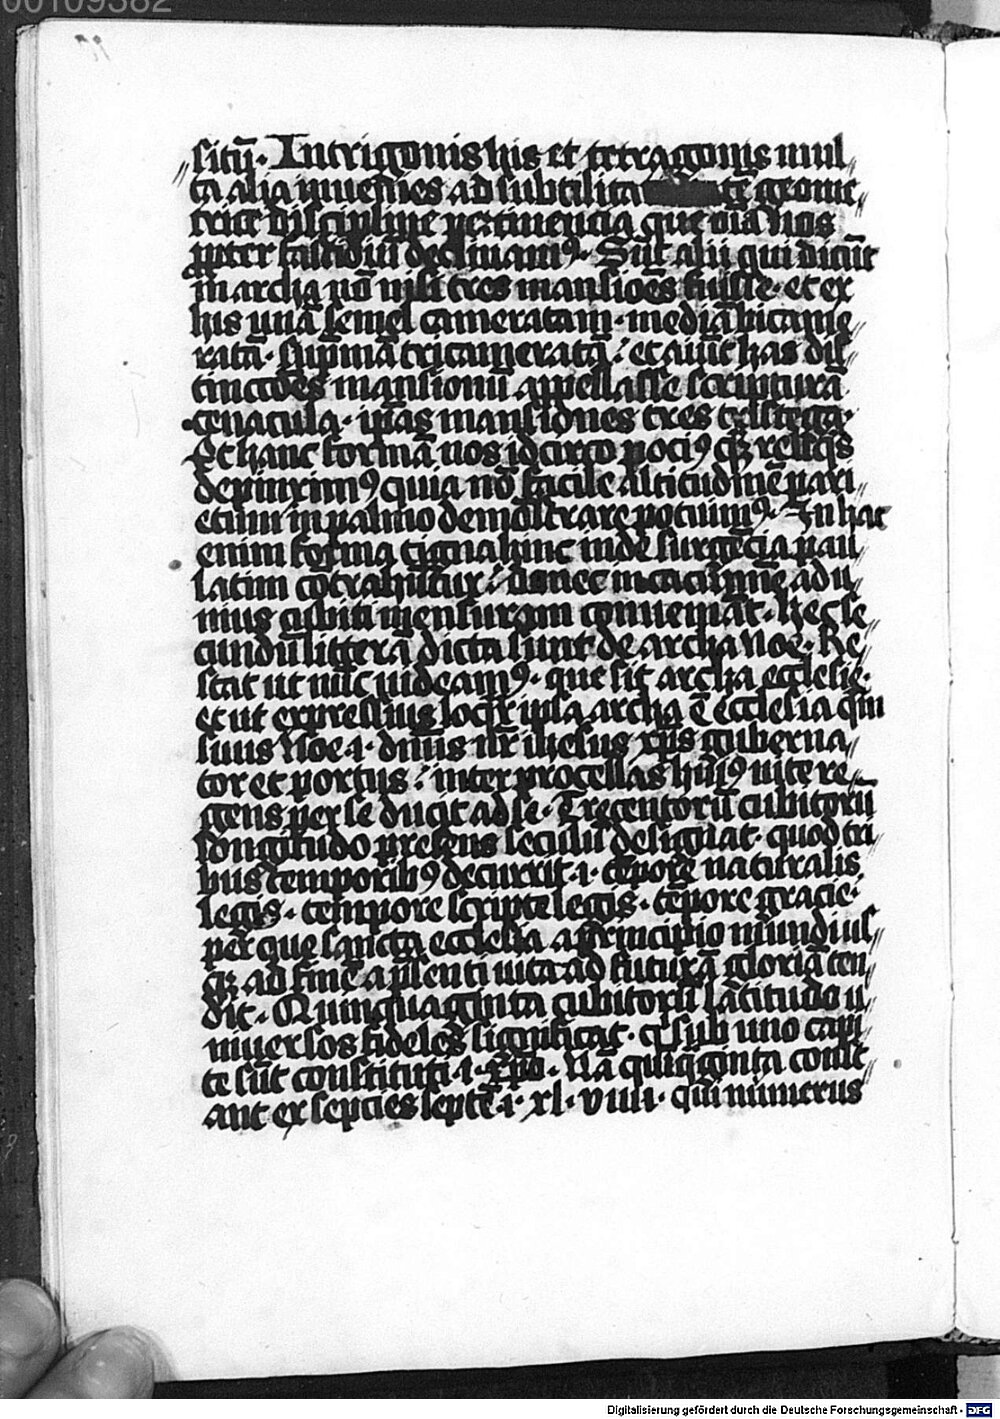 00109382
situ̅. In trigonis his et tetragonis mul
ta alia inuenies ad subtilita te geome
trice discipline pertinencia que oīa nos
ꝓpter fastidiū declinamꝰ. Sūt alii qui dicūt
in archa nō nisi tres mansiōes fuisse. et ex
his unā semel cameratam. mediā bicame
ratā. sup̄mā tricameratā. et
tinctōes mansionū appellasse scripturā
cenacula. ip̄as mansiones tres tristega.
Et hanc formā nos idcirco pociꝰ qȝ reliq̄s
depinximꝰ quia nō facile altitudinē pari
etum in palmo demōstrare potuimꝰ. In hac
enim forma tigna hinc inde surgēcia pau
latim cōtrahūtur. donec in cacumine ad u
nius cubiti mensuram conueniāt. Hec se
cundū litterā dicta sunt de archa Noe. Re
stat ut nūc uideamꝰ. que sit archa ecclesie.
et ut expressius loq̄r ipsa archa ē ecclesia quā
suus Noe .i. dn̄us nr̄ ihesus xp̄s guberna
tor et portus. inter procellas huiꝰ uite re
gens per se ducit ad se. Trecentorū cubitorū
longitudo presens seculū designat. quod tri
bus temporibꝰ decurrit .i. tēpore naturalis
legis. tempore scripte legis. tēpore gracie.
per que sancta ecclesia a principio mundi us
qȝ ad finē a p̄senti uita ad futurā gloriā ten
dit. Quinquaginta cubitorū latitudo u
niuersos fideles significat. q̄ sub uno capi
te sūt constituti .i. xp̄o. Nā quīq̄ginta const
ant ex septies septē .i. xl. viiii. qui numerus
Digitalisierung gefördert durch die Deutsche Forschungsgemeinschaft - DFG